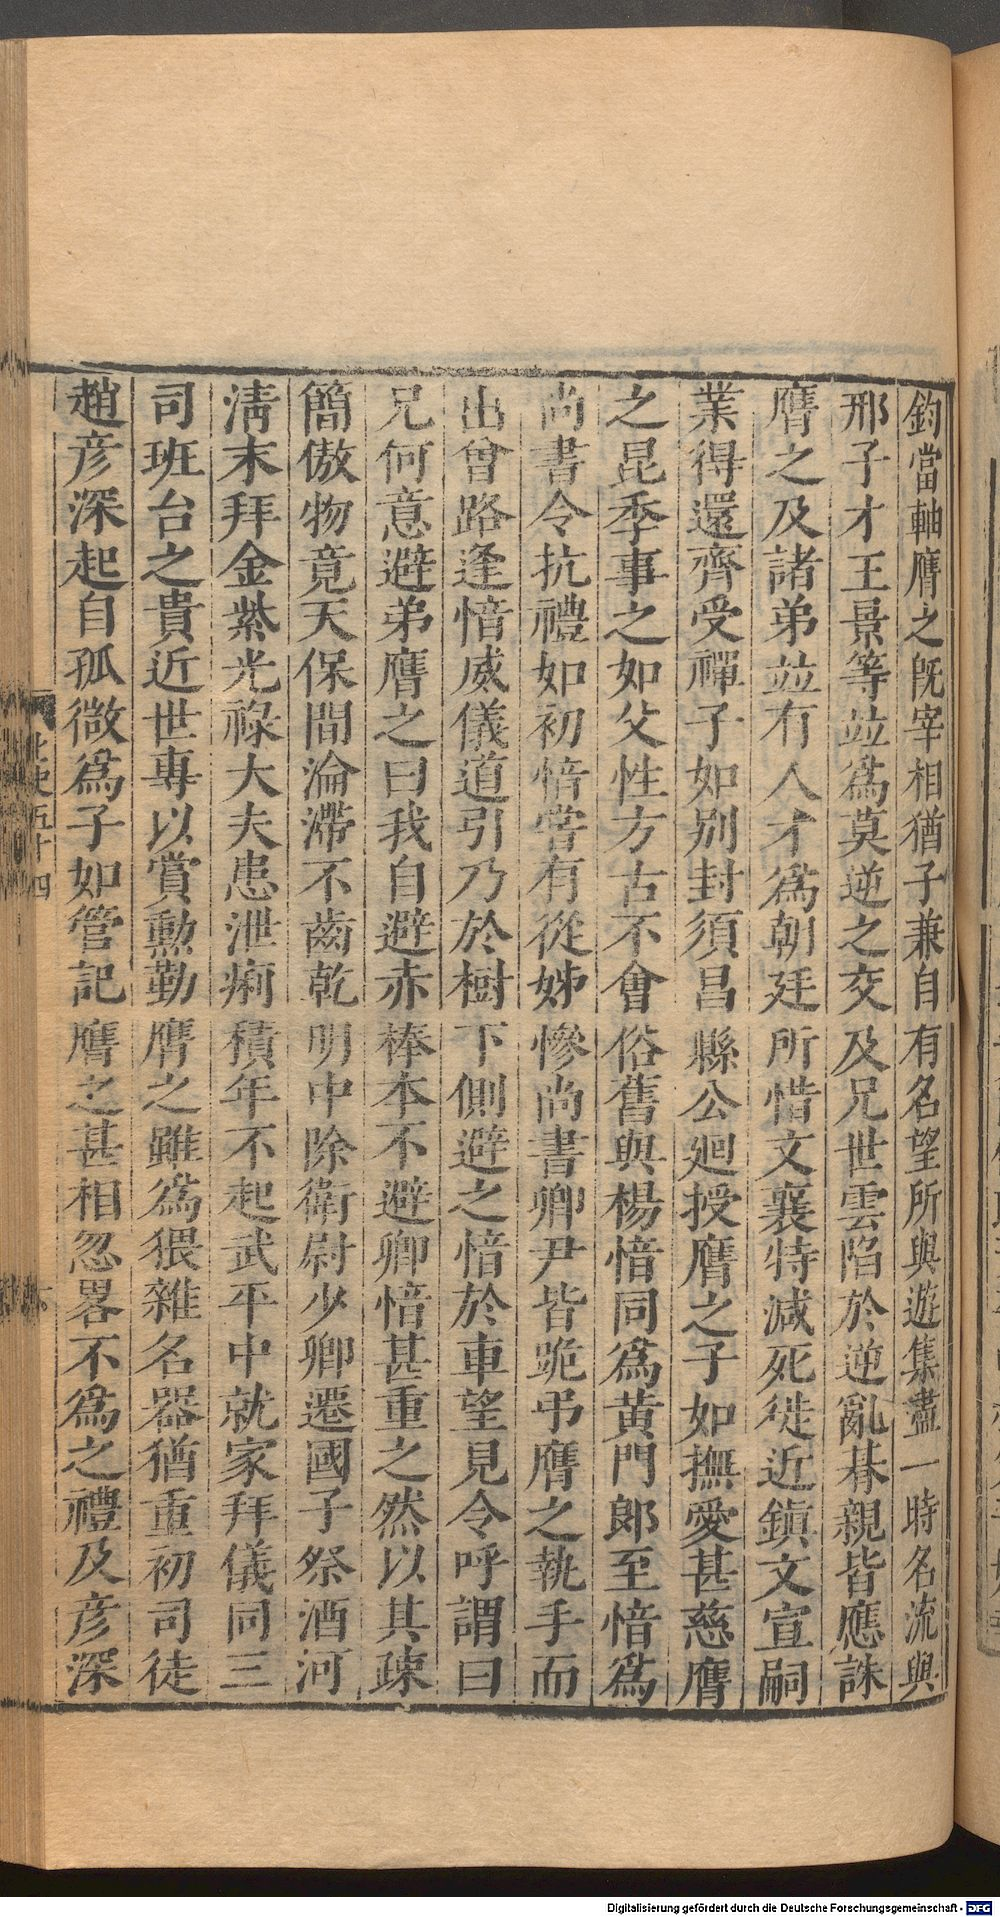 鈞當軸膺之旣宰相猶子兼自有名望所與遊集盡一時名流與
邢子才王景等並爲莫逆之交及兄世雲陷於逆亂朞親皆應誅
膺之及諸弟並有人才爲朝廷所惜文襄特減死徙近鎭文宣嗣
業得還齊受禪子如別封須昌縣公廻授膺之子如撫愛甚慈膺
之昆季事之如父性方古不會俗舊與楊愔同爲黃門郎至愔爲
尚書令抗禮如初愔嘗有從姊慘尚書卿尹皆跪弔膺之執手而
出曾路逢愔威儀道引乃於樹下側避之愔於車望見令呼謂曰
兄何意避弟膺之曰我自避赤棒本不避卿愔甚重之然以其疎
簡傲物竟天保間淪滯不齒乾明中除衛尉少卿遷國子祭酒河
淸末拜金紫光祿大夫患泄痢積年不起武平中就家拜儀同三
司班台之貴近世專以賞勳勤膺之雖爲猥雜名器猶重初司徒
趙彦深起自孤微爲子如管記膺之甚相忽畧不爲之禮及彦深
北史五十四
六
Digitalisierung gefördert durch die Deutsche Forschungsgemeinschaft - DFG